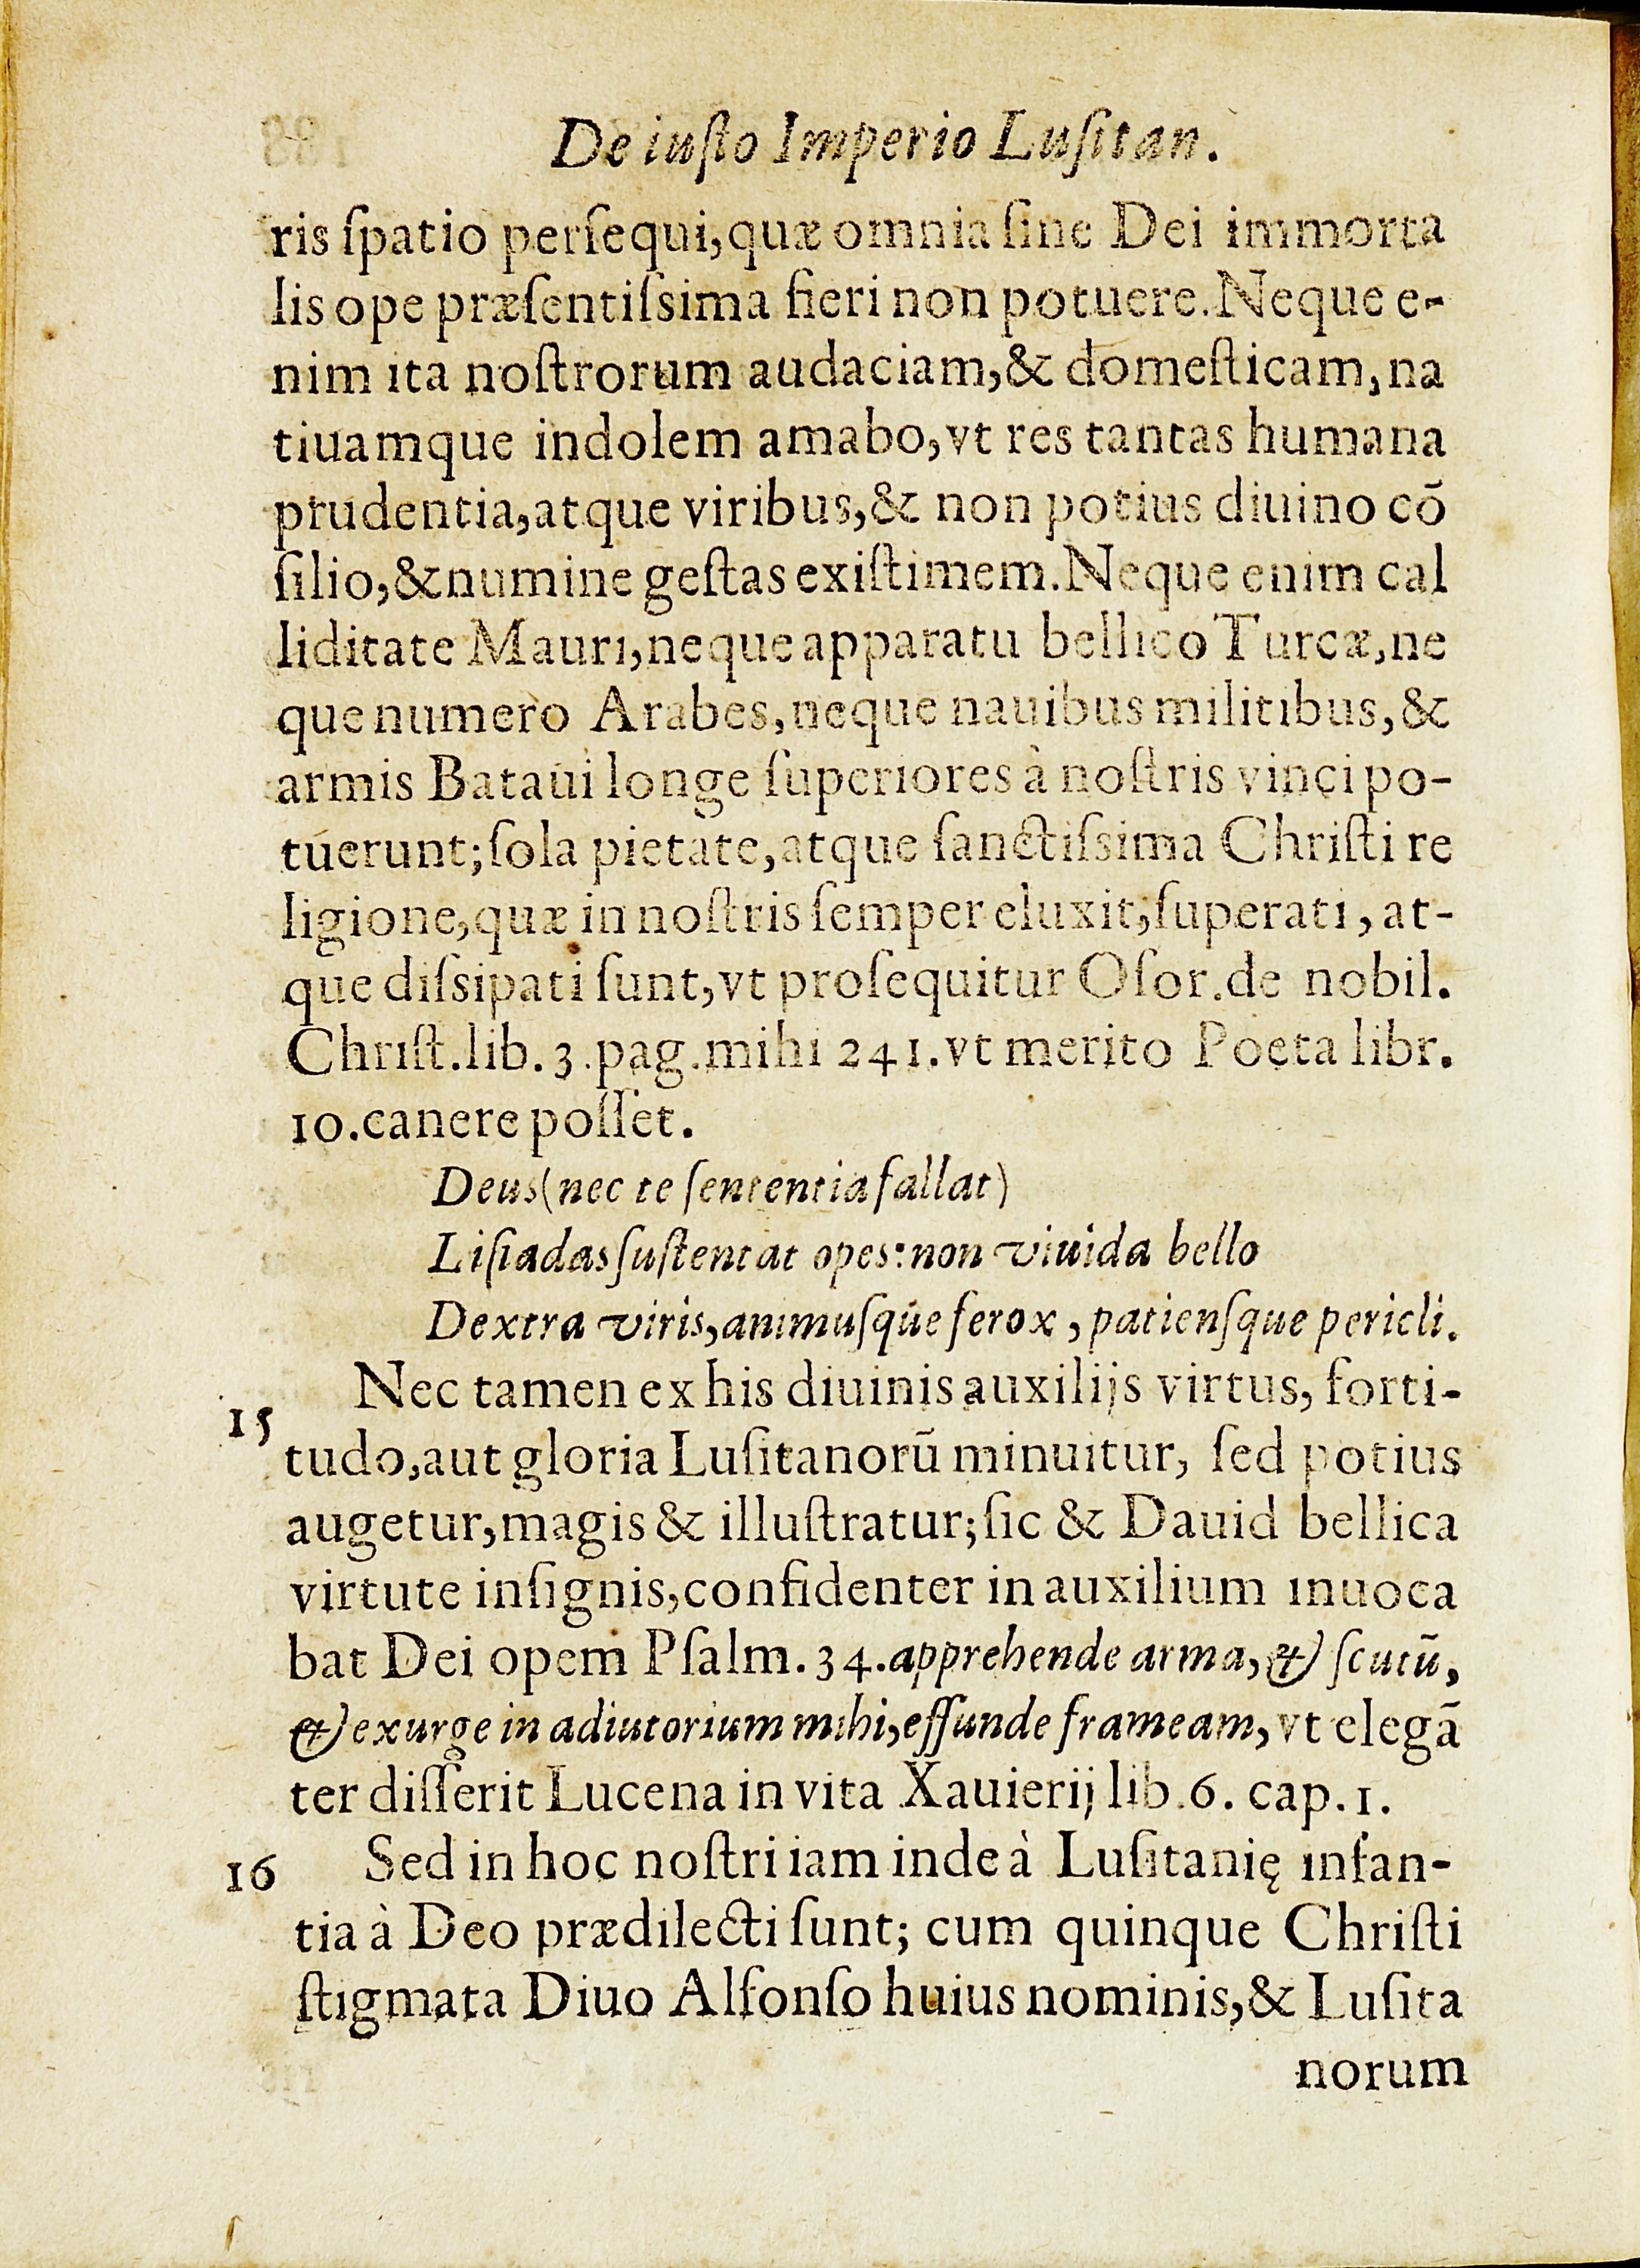 De iuſto Imperio Luſitan.
ris ſpatio perſequi, quæ omnia ſine Dei immorta
lis ope præſentiſsima fieri non potuere. Neque e-
nim ita noſtrorum audaciam, & domeſticam, na
tiuamque indolem amabo, vt res tantas humana
prudentia, atque viribus, & non potius diuino cō
ſilio, & numine geſtas exiſtimem. Neque enim cal
liditate Mauri, neque apparatu bellico Turcæ, ne
que numero Arabes, neque nauibus militibus, &
armis Bataui longe ſuperiores à noſtris vinci po-
tuerunt; ſola pietate, atque ſanctiſsima Chriſti re
ligione, quæ in noſtris ſemper eluxit, ſuperati, at-
que diſsipati ſunt, vt proſequitur Oſor. de nobil.
Chriſt. lib. 3. pag. mihi 241. vt merito Poeta libr.
10. canere poſſet.
Deus (nec te ſententia fallat)
Liſiadas ſuſtentat opes: non viuida bello
Dextra viris, animuſque ferox, patienſque pericli.
15 Nec tamen ex his diuinis auxilijs virtus, forti-
tudo, aut gloria Luſitanorū minuitur, ſed potius
augetur, magis & illuſtratur; ſic & Dauid bellica
virtute inſignis, confidenter in auxilium inuoca
bat Dei opem Pſalm. 34. apprehende arma, & ſcutū,
& exurge in adiutorium mihi, effunde frameam, vt elegā
ter diſſerit Lucena in vita Xauierij lib. 6. cap. 1.
16 Sed in hoc noſtri iam inde à Luſitanię infan-
tia à Deo prædilecti ſunt; cum quinque Chriſti
ſtigmata Diuo Alfonſo huius nominis, & Luſita
norum